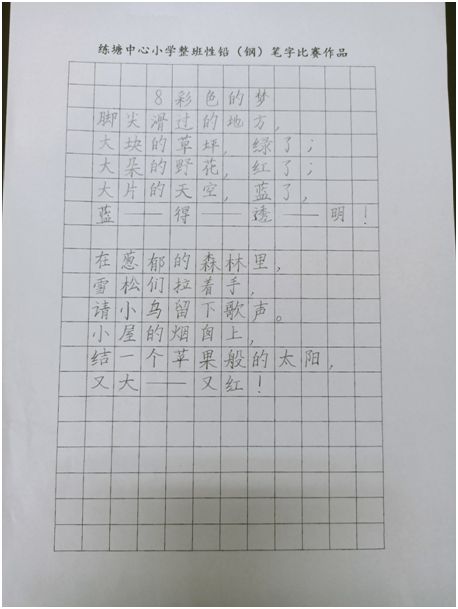 练塘中心小学整班性铅（钢）笔字比赛作品
8彩色的梦
脚尖滑过的地方，
大块的草坪，绿了；
大朵的野花，红了；
大片的天空，蓝了，
蓝——得——透——明！
在葱郁的森林里，
雪松们拉着手，
请小鸟留下歌声。
小屋的烟囱上，
结一个苹果般的太阳，
又大——又红！